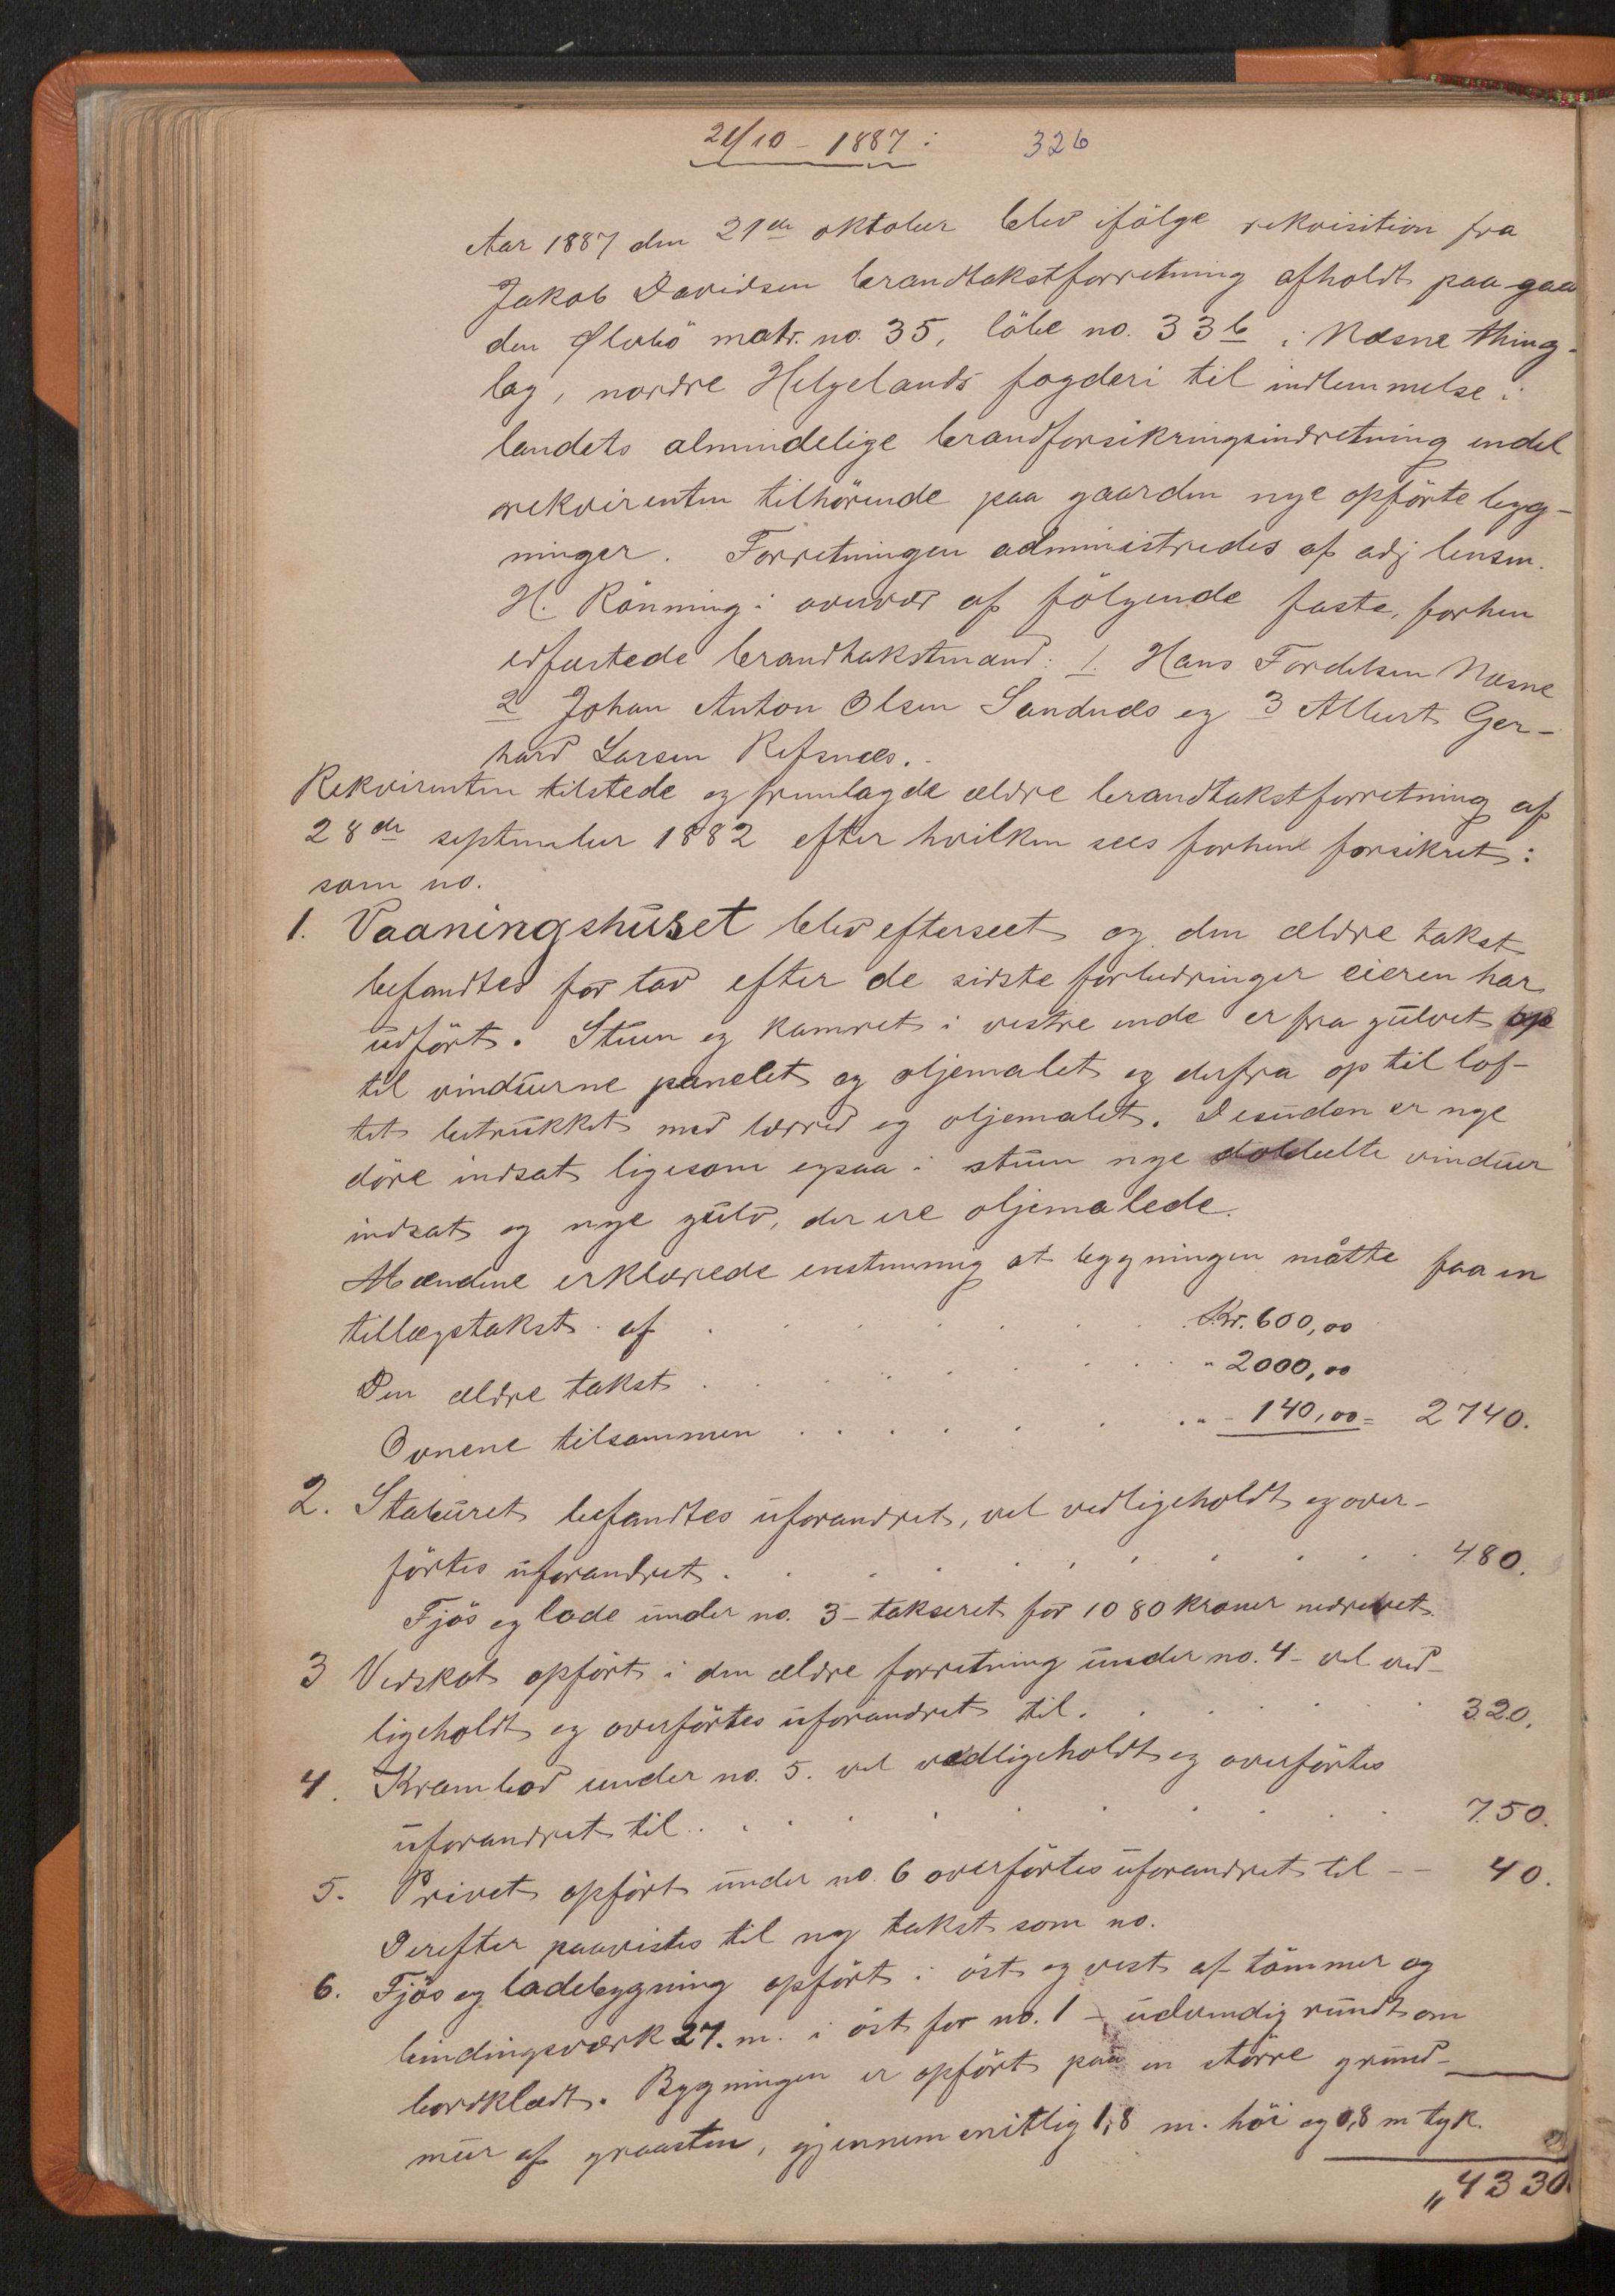 21/10 - 1887: 326
Aar 1887 den 21de oktober blev ifölge rekvisition fra
Jakob Davidsen brandtakstforretning afholdt paa gaar
den matr. no. 35, löbe no. 33 b i Næsne thing-
lag, nordre Helgelands fogderi til indlemmelse i
landets almindelige brandforsikringsindretning endel
rekvirenten tilhörende paa gaarden nye opförte byg-
ninger. Forretningen administredes af adj lensm.
H. Rönning i overvær af fölgende faste, forhen
edfæstede brandtakstmænd: 1. Hans Tordelsen Næsne
2 Johan Anton Olsen Sandnæs og 3 Albert Ger-
hard Larsen Refsnæs.
Rekvirenten tilstede og fremlagde ældre brandtakstforretning af
28de september 1882 efter hvilken sees forhen forsikret:
som no.
1. Vaaningshuset blev efterseet og den ældre takst
befandtes for lav efter de sidste forbedringer eieren har
udfört. Stuen og kamret i vestre ende er fra gulvet op
til vinduerne panelet og oljemalet og derfra op til lof-
tet betrukket med lærred og oljemalet. Desuden er nye
döre indsat ligesom ogsaa i stuen nye dobbelte vinduer
indsat og nye gulv, der ere oljemalede.
Mændene erklærede enstemmig at bygningen måtte faa en
tillægstakst af . . . . . . Kr. 600,00
Den ældre takst . . . . . . " 2000,00
Ovnene tilsammen . . . . . " - 140,00 = 2740.
2. Staburet befandtes uforandret, vel vedligeholdt og over-
förtes uforandret . . . . . . . . 480.
Fjös og lade under no. 3 - takseret for 1080 kroner nedrevet.
3 Vedskot opfört i den ældre forretning under no. 4 - vel ved-
ligeholdt og overförtes uforandret til . . . . . 320.
4. Krambod under no. 5. vel vedligeholdt og overförtes
uforandret til . . . . . . . . . 750.
5. Privet opfört under no. 6 overförtes uforandret til - - 40.
Derefter paavistes til ny takst som no.
6. Fjös og ladebygning opfört i öst og vest af tömmer og
bindingsværk 27. m. i öst for no. 1 - udvendig rundt om
bordklædt. Bygningen er opfört paa en större grund-
mur af graasten, gjennemsnitlig 1,8 m. höi og 0,8 m tyk.
" 4330